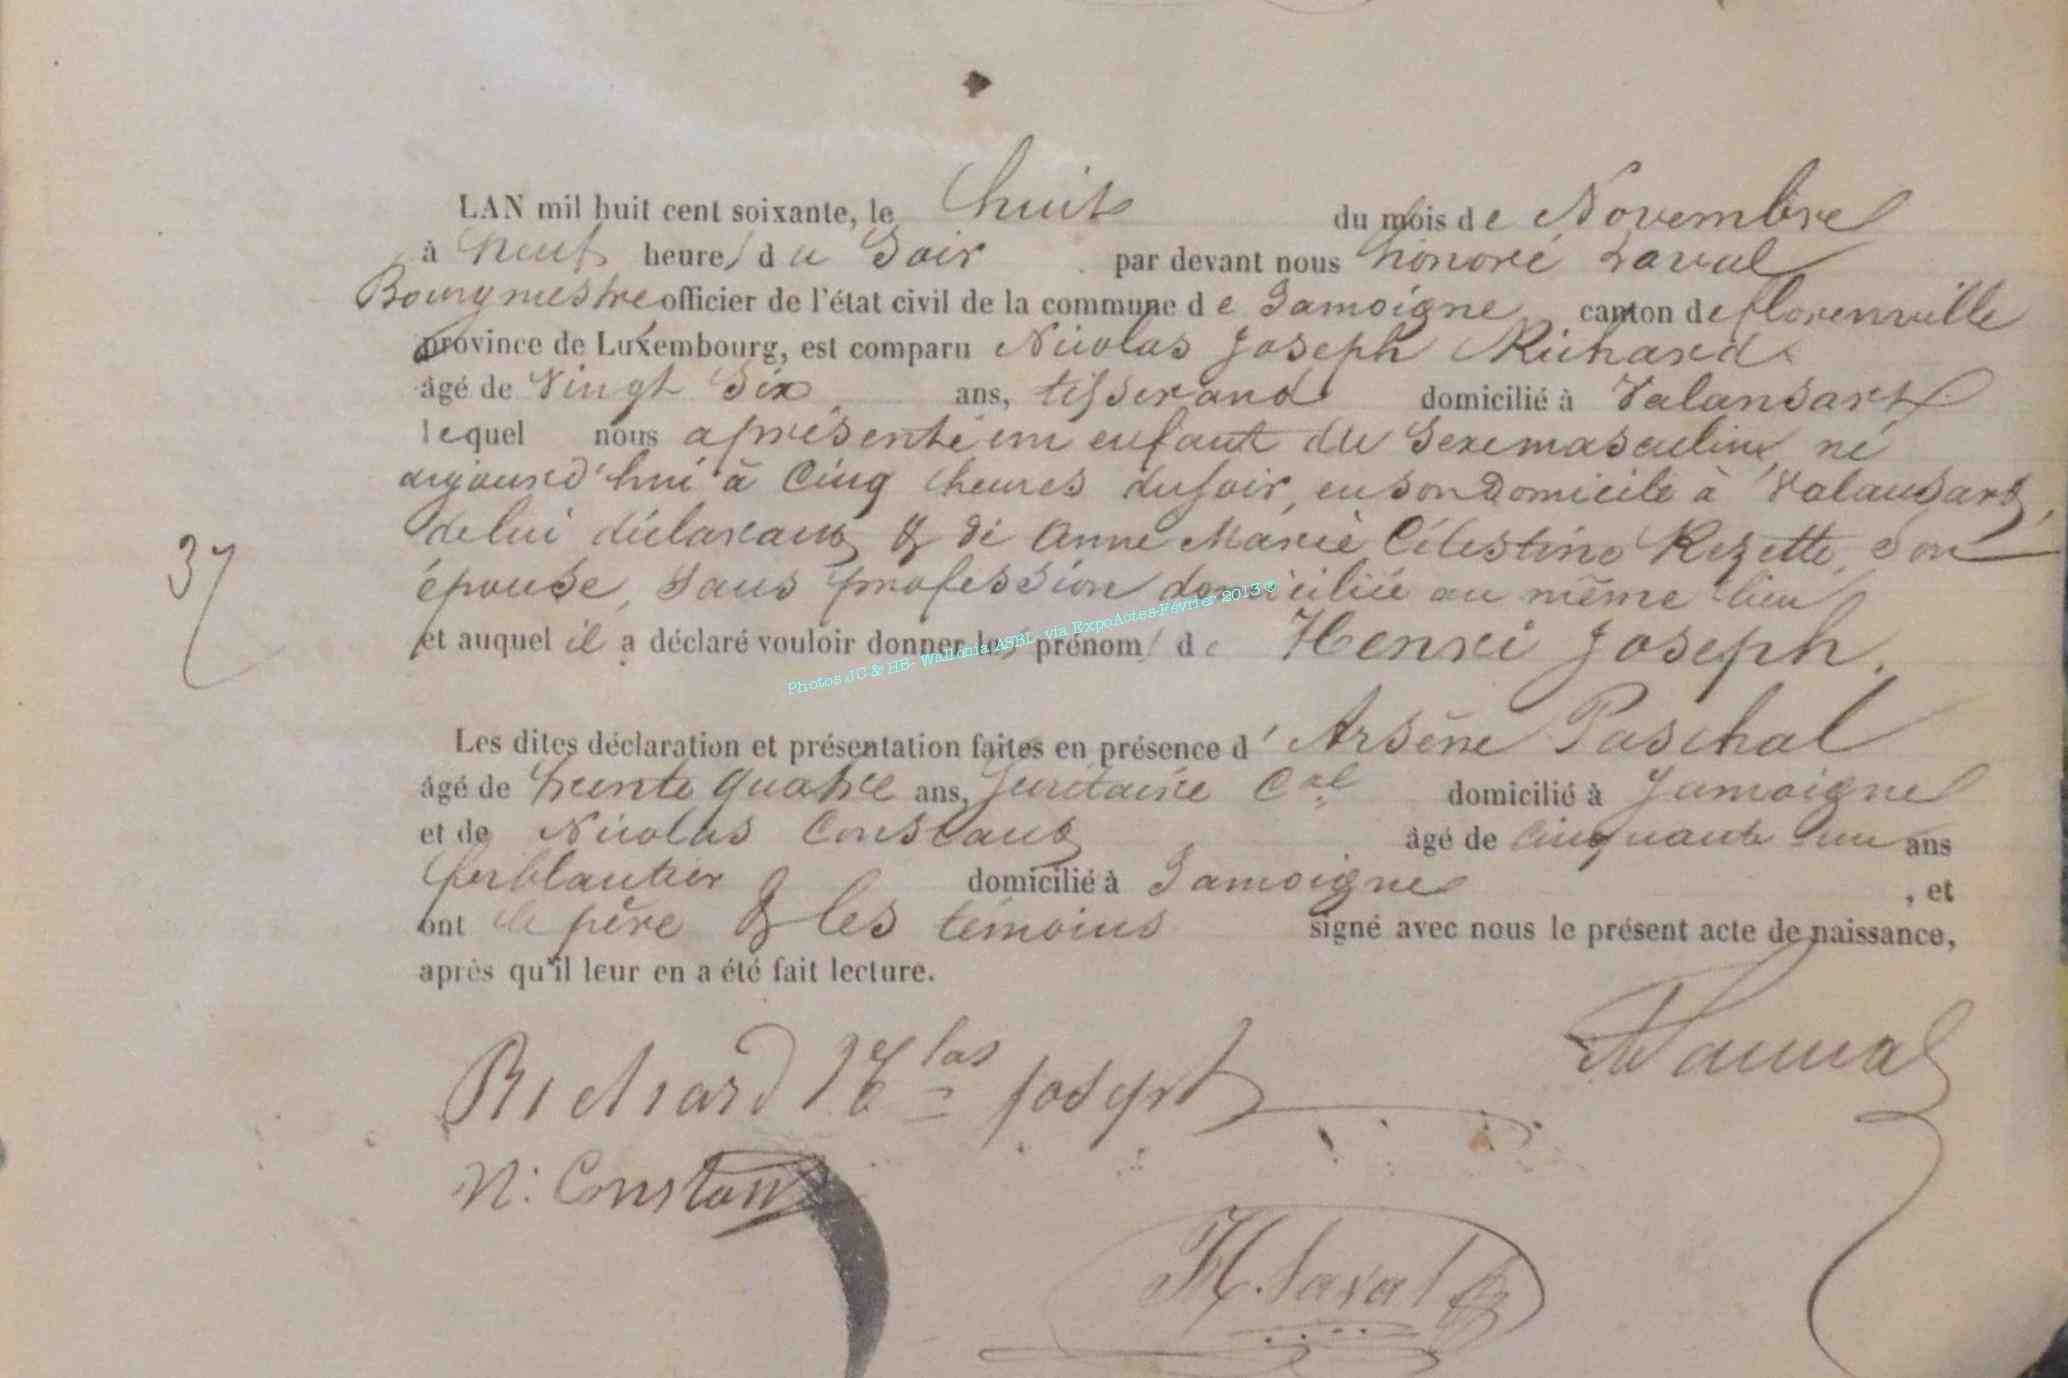 LAN mil huit cent soixante, le huit du mois de Novembre
à neuf heures du Soir par devant nous honoré Laval
Bourgmestre officier de l'état civil de la commune de Jamoigne canton de florenville
province de Luxembourg, est comparu Nicolas Joseph Richard
âgé de Vingt Six ans, tisserand domicilié à Valansart
lequel nous a présenté un enfant du Sexe masculin, né
aujourd'hui à Cinq heures du soir, en son Domicile à Valansart,
de lui déclarant & de Anne Marie Célestine Rezette, son
épouse, Sans profession domiciliée au même lieu
37
et auquel il a déclaré vouloir donner les prénoms de Henri Joseph.
Photos JC & HB- Wallonia ASBL, via ExpoActes-Février 2013 ©
Les dites déclaration et présentation faites en présence d' Arsène Paschal
âgé de trente quatre ans, Secrétaire Cal domicilié à Jamoigne
et de Nicolas Constant âgé de cinquante un ans
ferblantier domicilié à Jamoigne, et
ont le père & les témoins signé avec nous le présent acte de naissance,
après qu'il leur en a été fait lecture.
Richard Nclas Joseph
N: Constant
H. Laval